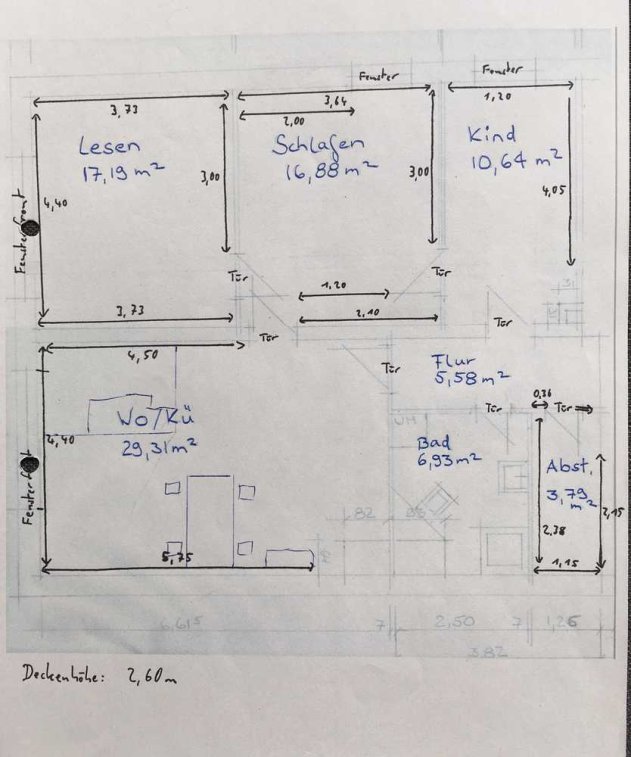 Fenster
Fenster
3,73
3,64
1,20
2,00
Lesen
17,19 m²
Schlafen
16,88 m²
Kind
10,64 m²
3,00
3,00
4,05
4,40
Fensterfront
Tür
Tür
1,20
3,73
2,10
Tür
Tür
4,50
Flur
5,58 m²
Tür
0,36
Wo/Kü
29,31 m²
4,40
Tür
Tür
WM
Bad
6,93 m²
Abst.
3,79 m²
Fensterfront
82
2,38
2,15
5,75
1,15
6,615
7
2,50
7
1,26
3,82
Deckenhöhe: 2,60 m